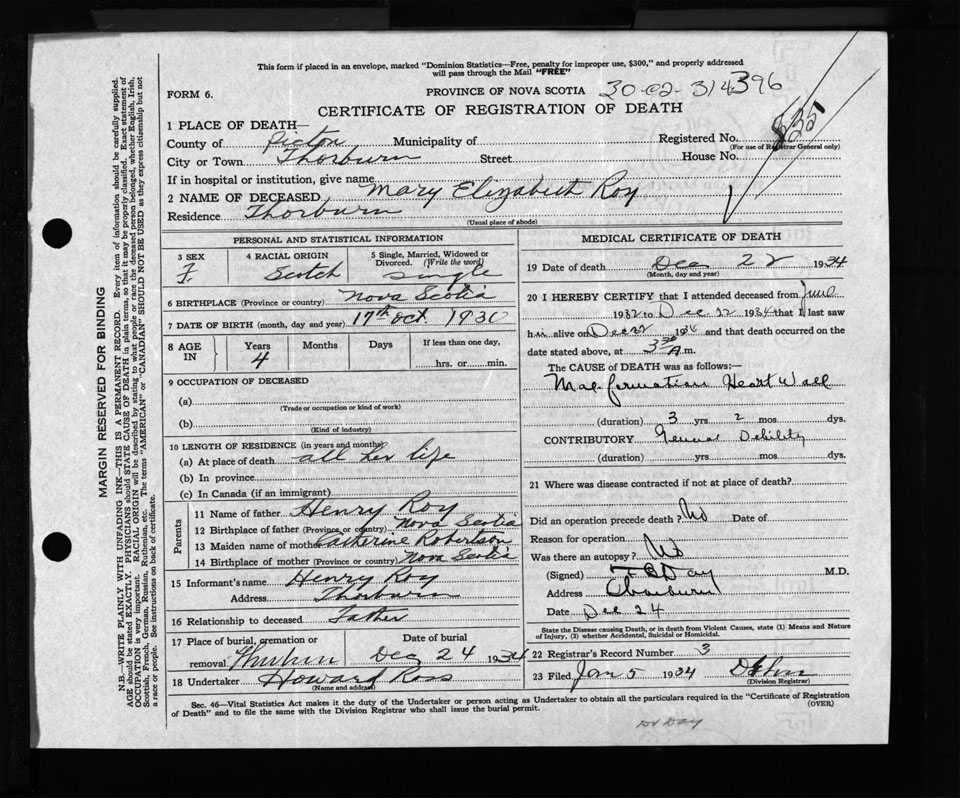 This form if placed in an envelope, marked "Dominion Statistics—Free, penalty for improper use, $300," and properly addressed
will pass through the Mail "FREE"
FORM 6.
PROVINCE OF NOVA SCOTIA 30-02-314396
CERTIFICATE OF REGISTRATION OF DEATH
1 PLACE OF DEATH—
County of Pictou Municipality of Registered No.
(For use of Registrar General only)
City or Town Thorburn Street House No.
If in hospital or institution, give name
2 NAME OF DECEASED Mary Elizabeth Roy
Residence Thorburn
(Usual place of abode)
PERSONAL AND STATISTICAL INFORMATION
3 SEX 4 RACIAL ORIGIN 5 Single, Married, Widowed or
Divorced. (Write the word)
F. Scotch Single
6 BIRTHPLACE (Province or country) Nova Scotia
7 DATE OF BIRTH (month, day and year) 17th Oct. 1930
8 AGE IN Years Months Days If less than one day,
4 hrs. or min.
9 OCCUPATION OF DECEASED
(a)
(Trade or occupation or kind of work)
(b)
(Kind of industry)
10 LENGTH OF RESIDENCE (in years and months)
(a) At place of death all her life
(b) In province
(c) In Canada (if an immigrant)
Parents
11 Name of father Henry Roy
12 Birthplace of father (Province or country) Nova Scotia
13 Maiden name of mother Catherine Robertson
14 Birthplace of mother (Province or country) Nova Scotia
15 Informant's name Henry Roy
Address Thorburn
16 Relationship to deceased Father
17 Place of burial, cremation or Date of burial
removal Dec 24 1934
18 Undertaker Howard Ross
(Name and address)
MEDICAL CERTIFICATE OF DEATH
19 Date of death Dec 22 1934
(Month, day and year)
20 I HEREBY CERTIFY that I attended deceased from June
1932 to Dec 22 1934 that I last saw
h alive on Dec 22 1934 and that death occurred on the
date stated above, at 3 30 A m.
The CAUSE of DEATH was as follows:—
Mal formation Heart Wall
(duration) 3 yrs. 2 mos. dys.
CONTRIBUTORY General Debility
(duration) yrs. mos. dys.
21 Where was disease contracted if not at place of death?
Did an operation precede death? No Date of
Reason for operation
Was there an autopsy? No
(Signed) Day M.D.
Address Thorburn
Date Dec 24
State the Disease causing Death, or in death from Violent Causes, state (1) Means and Nature
of Injury, (2) whether Accidental, Suicidal or Homicidal.
22 Registrar's Record Number 3
23 Filed Jan 5 1934
(Division Registrar)
Sec. 46—Vital Statistics Act makes it the duty of the Undertaker or person acting as Undertaker to obtain all the particulars required in the "Certificate of Registration
of Death" and to file the same with the Division Registrar who shall issue the burial permit. (OVER)
Dr Day
MARGIN RESERVED FOR BINDING
N.B.—WRITE PLAINLY WITH UNFADING INK—THIS IS A PERMANENT RECORD. Every item of information should be carefully supplied.
AGE should be stated EXACTLY. PHYSICIANS should STATE CAUSE OF DEATH in plain terms, so that it may be properly classified. Exact statement of
OCCUPATION is very important. RACIAL ORIGIN will be described by stating to what people or race the deceased person belonged, whether English, Irish,
Scottish, French, German, Russian, Ruthenian, etc. The terms "AMERICAN" or "CANADIAN" SHOULD NOT BE USED as they express citizenship but not
a race or people. See instructions on back of certificate.